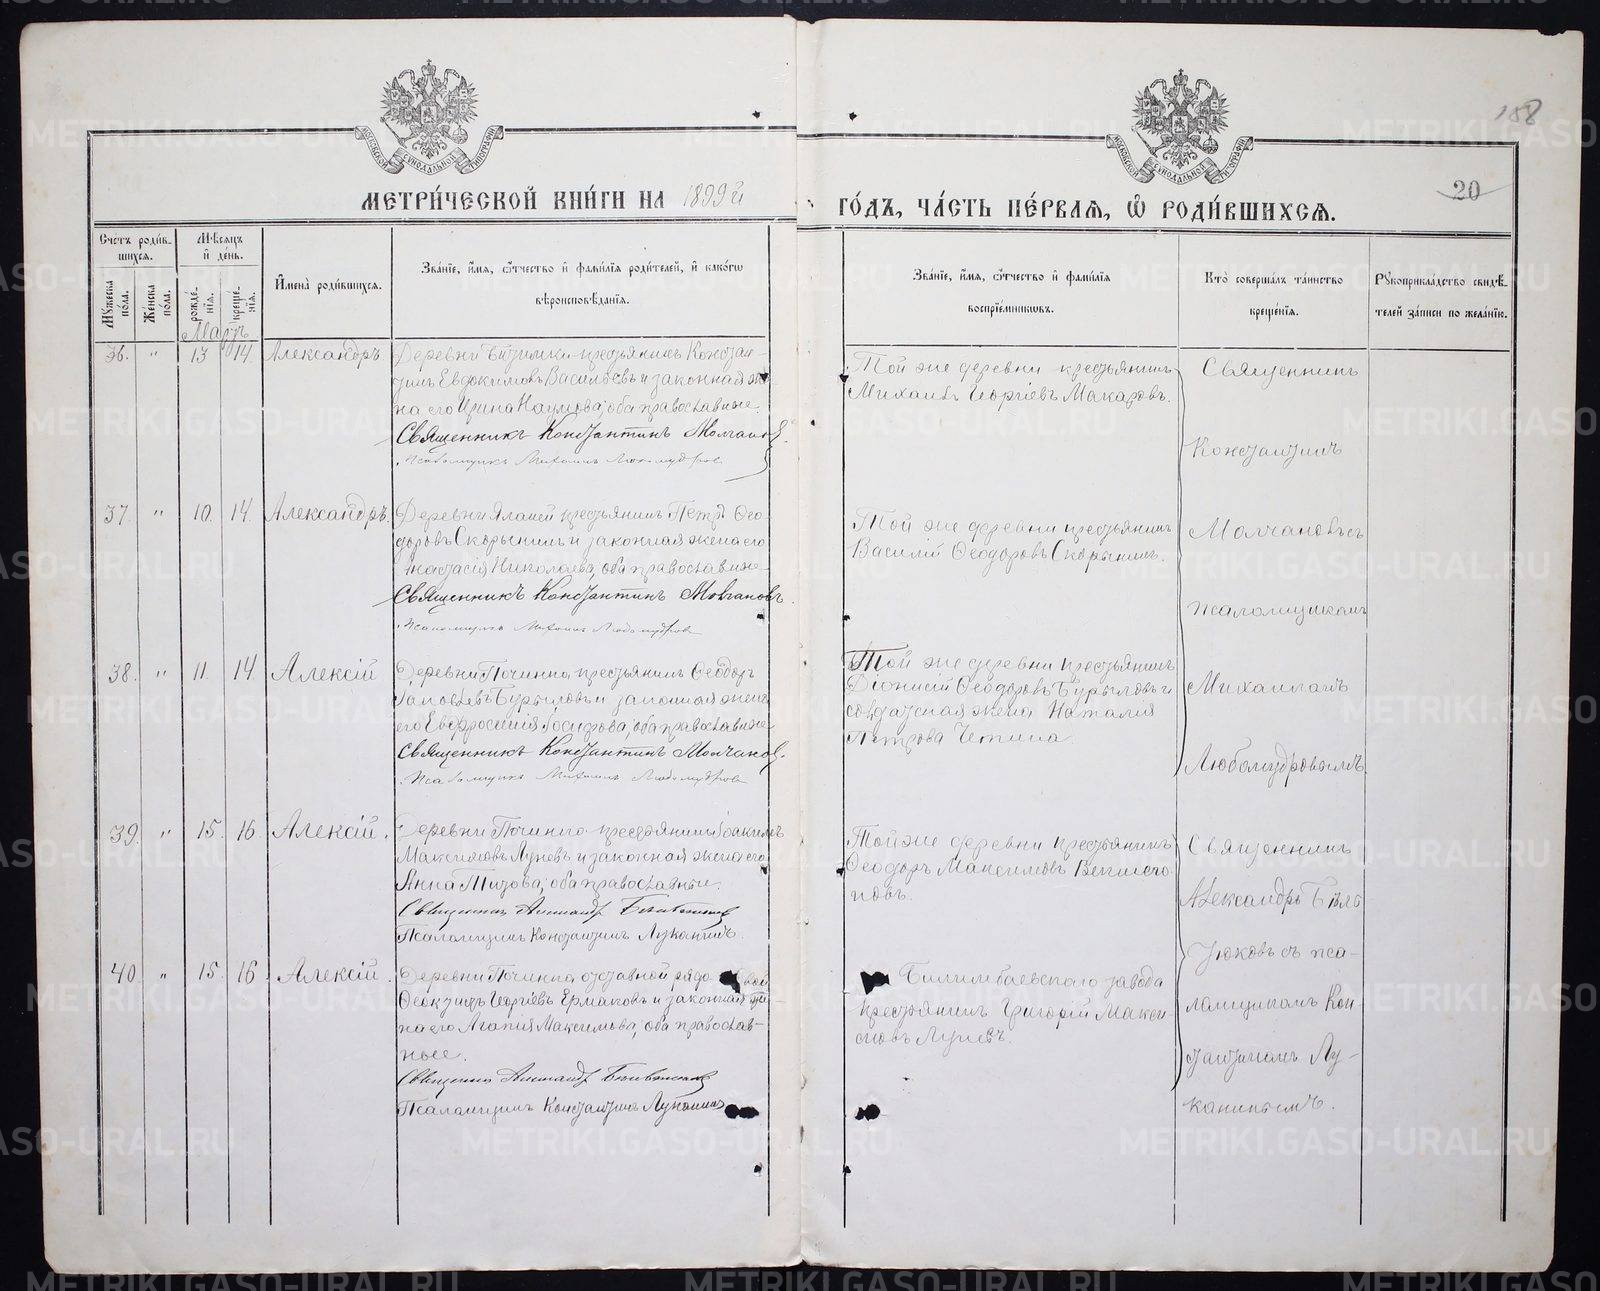 158
20
МЕТРИ́ЧЕСКОЙ КНИ́ГИ НА 1899й
ГО́ДЪ, ЧА́СТЬ ПЕ́РВАЯ, Ѡ РОДИ́ВШИХСЯ.
Счетъ роди́в-
шихся.
Мꙋжеска пола.
Женска пола.
Мѣсяцъ
и҆ де́нь.
рожде́нїя.
креще́нїя.
Мартъ
И҆мена̀ роди́вшихся.
Зва́нїе, и҆мя, ѻ҆́тчество и҆ фами́лїя роди́телей, и҆ како́гѡ
вѣроисповѣ́данїя.
Зва́нїе, и҆мя, ѻ҆́тчество и҆ фами́лїя
воспрїе́мникѡвъ.
Кто̀ соверша́лъ та́инство
креще́нїя.
Рꙋкоприкла́дство свидѣ́-
телей за́писи по жела́нїю.
36. " 13 14 Александръ
Деревни крестьянинъ Констан-
тинъ Евдокимовъ Васильевъ и законная же-
на его Ирина Наумова, оба православные.
Священникъ Константинъ Молчановъ.
Псаломщикъ Михаилъ Любомудровъ
Той же деревни крестьянинъ
Михаилъ Георгіевъ Макаровъ.
Священникъ
Константинъ
Молчановъ съ
псаломщикомъ
Михаиломъ
Любомудровымъ.
37. " 10. 14. Александръ.
Деревни крестьянинъ Петръ Ѳео-
доровъ Скорынинъ и законная жена его
Анастасія Николаева, оба православные
Священникъ Константинъ Молчановъ
Псаломщикъ Михаилъ Любомудровъ
Той же деревни крестьянинъ
Василій Ѳеодоровъ Скорынинъ.
38. " 11. 14. Алексій
Деревни Починка крестьянинъ Ѳеодоръ
Бурыловъ и законная жена
его Евфросинія, оба православные
Священникъ Константинъ Молчановъ.
Псаломщикъ Михаилъ Любомудровъ
Той же деревни крестьянинъ
Діонисій Ѳеодоровъ Бурыловъ и
солдатская жена Наталія
Петрова
39. " 15. 16. Алексій.
Деревни Починка крестьянинъ Іоакимъ
Максимовъ Луневъ и законная жена его
Анна Титова, оба православные.
Священникъ Александръ
Псаломщикъ Константинъ Луканинъ.
Той же деревни крестьянинъ
Ѳеодоръ Максимовъ
Священникъ
Александръ
съ пса-
ломщикомъ Кон-
стантиномъ Лу-
канинымъ.
40 " 15. 16. Алексій.
Деревни Починка отставной рядовой
Ѳеоктистъ Георгіевъ Ермаковъ и законная же-
на его Агапія Максимова, оба православ-
ные.
Священникъ Александръ
Псаломщикъ Константинъ Луканинъ
Билимбаевскаго завода
крестьянинъ Григорій Макси-
мовъ Луневъ.
METRIKI.GASO-URAL.RU